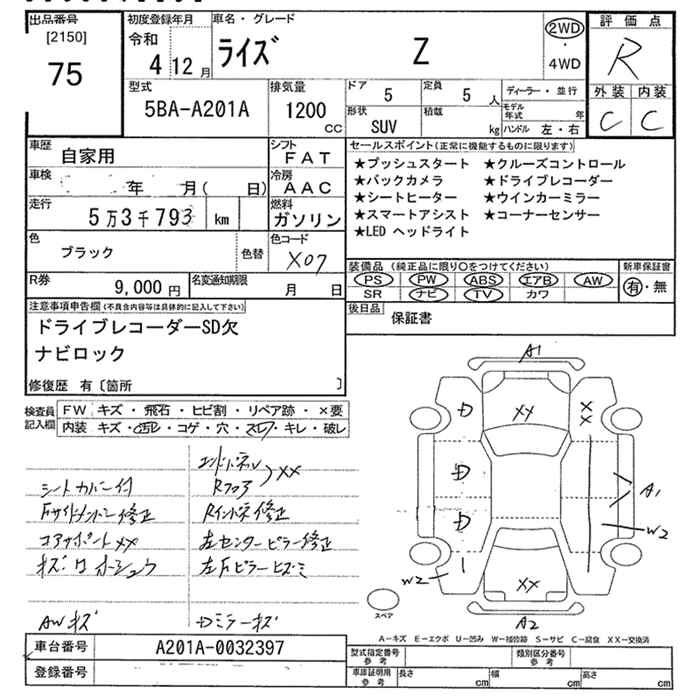 出品番号 初度登録年月 車名・グレード 評価点
[2150] 令和 ライズ Z 2WD・4WD R
75 4 12月
型式 排気量 ドア 5 定員 5人 ディーラー・並行 外装 内装
5BA-A201A 1200cc 形状 SUV 積載 kg モデル年式 年 ハンドル 左・右 C C
車歴 自家用 シフト FAT セールスポイント(正常に機能するものに限ります)
車検 年 月( 日) 冷房 AAC ★プッシュスタート ★クルーズコントロール
★バックカメラ ★ドライブレコーダー
走行 5万3千793 km 燃料 ガソリン ★シートヒーター ★ウインカーミラー
★スマートアシスト ★コーナーセンサー
色 ブラック 色替 色コード X07 ★LED ヘッドライト
R券 9,000円 名変通知期限 月 日 装備品(純正品に限り○をつけてください) 新車保証書
PS PW ABS エアB AW 有・無
SR ナビ TV カワ
注意事項申告欄(不具合内容等は具体的に記入して下さい) 後日品 保証書
ドライブレコーダーSD欠
ナビロック
修復歴 有〔箇所 〕
検査員記入欄 FW キズ・飛石・ヒビ割・リペア跡・×要
内装 キズ・凹・コゲ・穴・スレ・キレ・破レ
エンドパネル
シートカバー付 Rフロア XX
Fサイドメンバー修正 Rインナー修正
コアサポートXX 左センターピラー修正
左Fピラーヒズミ
AWキズ Dミラーキズ
A1
D XX XX
D A1
D W2
W2 XX
スペア A2
A-キズ E-エクボ U-凹み W-補修跡 S-サビ C-腐食 XX-交換済
車台番号 A201A-0032397 型式指定番号 参考 類別区分番号 参考
登録番号 車庫証明用 参考 長さ cm 幅 cm 高さ cm